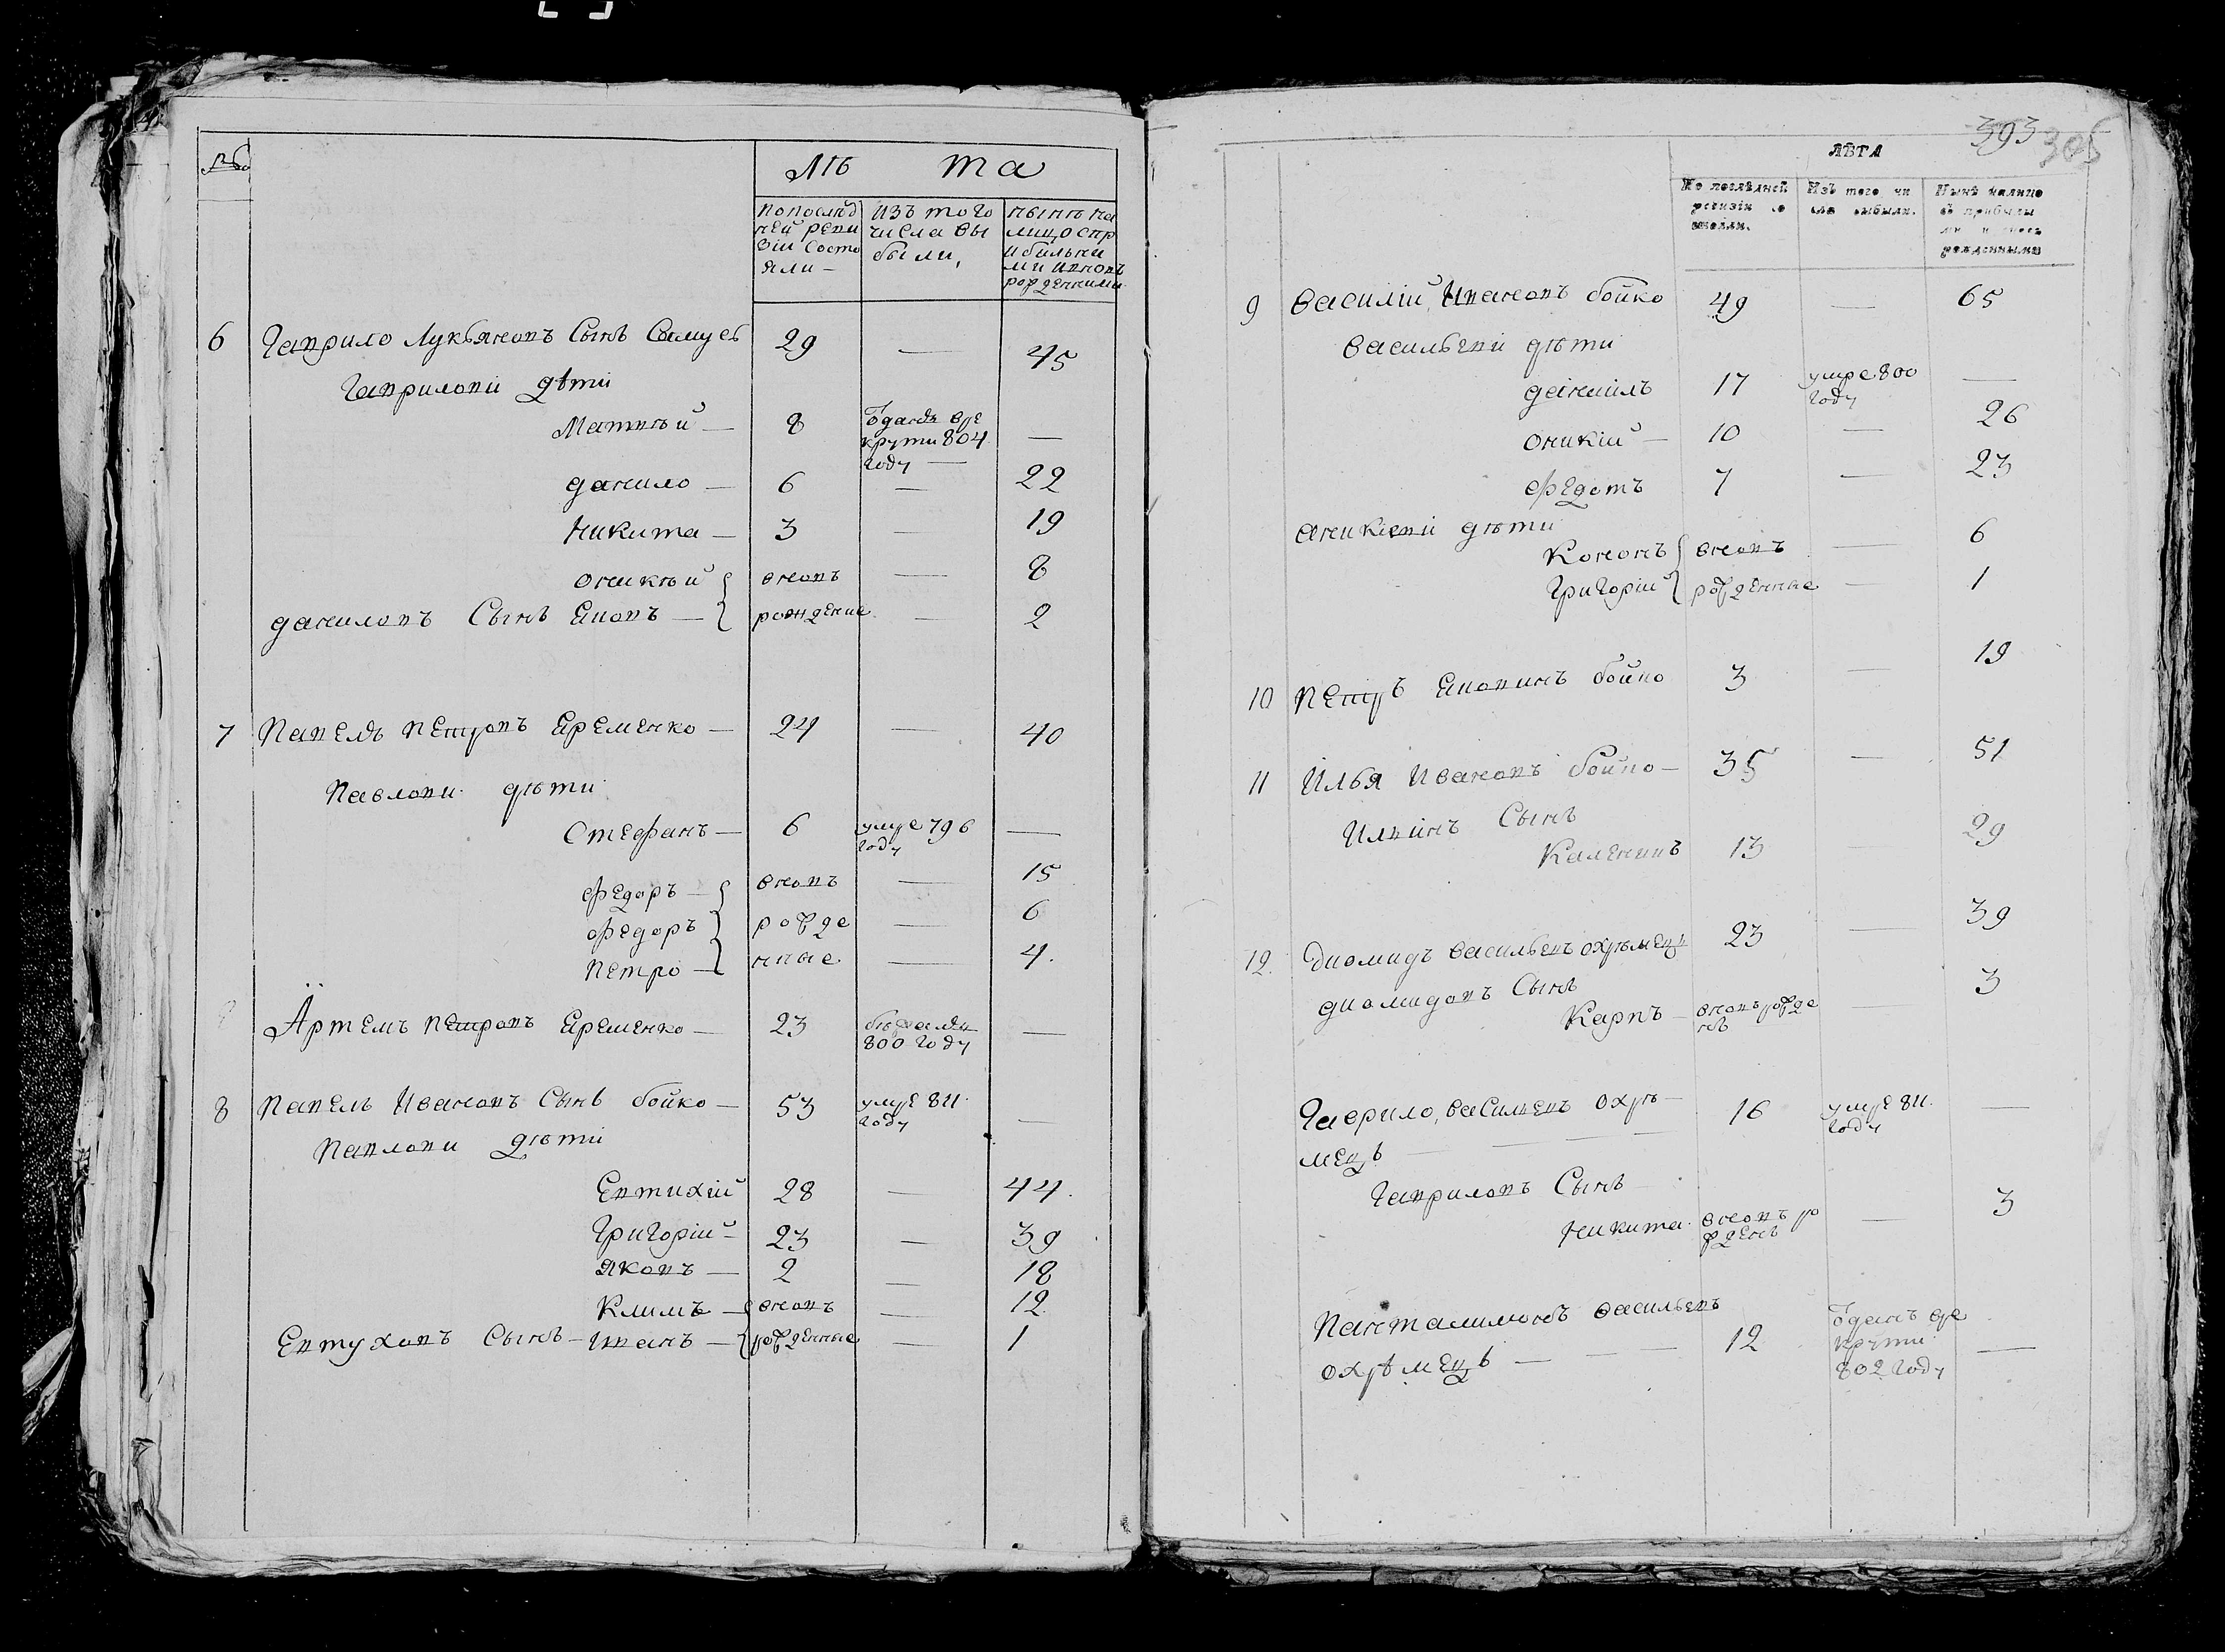 №
Лѣта
По последней ревизіи состояли
Изъ того числа выбыли,
Нынѣ на лицо сприбылыми ивновь рожденными
6 Гаврило Лукьяновъ Сынъ 29 — 45
Гавриловы дѣти
Матвѣй — 8 Ѿданъ врекруты 804 году —
Данило — 6 — 22
Никита — 3 — 19
Оникѣй вновь — 8
Даниловъ Сынъ Яковъ — рожденые — 2
7 Павелъ Петровъ Яременко — 24 — 40
Павлови дѣти
Стефанъ — 6 умре 796 году —
Федоръ — вновь — 15
Федоръ рожде — 6
Петро — нные — 4.
Артемъ Петровъ Яременко — 23 бѣжалъ 800 году —
8 Павелъ Ивановъ Сынъ бойко — 53 умре 811. году —
Павлови дѣти
Евтихій 28 — 44.
Григорій — 23 — 39
Яковъ — 2 — 18
Климъ — вновь — 12
Евтуховъ Сынъ — Иванъ — рожденные — 1
393 305
ЛѢТА
По послѣдней ревизіи состояли.
Изъ того числа выбыли.
Нынѣ налицо съ прибылыми и вновь рожденными
9 Василій Ивановъ бойко 49 — 65
Васильеви дѣти
Даніилъ 17 умре 800 году —
Оникій — 10 — 26
Федотъ 7 — 23
Оникіеви дѣти
Кононъ вновь — 6
Григорій рожденные — 1
10 Петръ Яковинъ бойко 3 — 19
11 Илья Ивановъ бойко — 35 — 51
Илпинъ Сынъ
Каленикъ 13 — 29
12. Диомидъ Васильевъ Охрѣмецъ 23 — 39
Диомидовъ Сынъ
Карпъ — вновь рожденъ — 3
Гаврило, Васильевъ Охрѣ— 16 умре 811. году —
мецъ — — —
Гавриловъ Сынъ
Никита. вновь рожденъ — 3
Панталимонъ Васильевъ
Охрѣмецъ — — — 12 Ѿданъ врекруты 802 году —